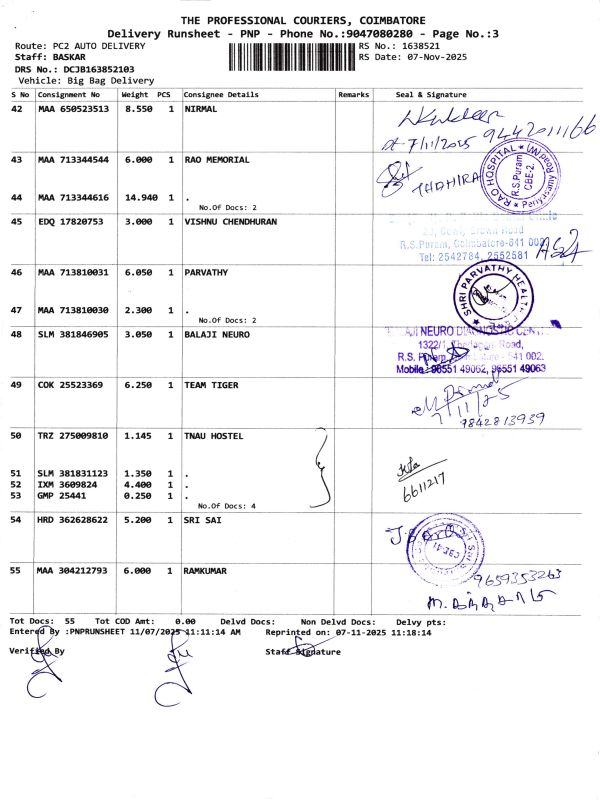 THE PROFESSIONAL COURIERS, COIMBATORE
Delivery Runsheet - PNP - Phone No.:9047080280 - Page No.:3
Route: PC2 AUTO DELIVERY RS No.: 1638521
Staff: BASKAR RS Date: 07-Nov-2025
DRS No.: DCJB163852103
Vehicle: Big Bag Delivery
S No Consignment No Weight PCS Consignee Details Remarks Seal & Signature
42 MAA 650523513 8.550 1 NIRMAL
7/11/2025 9442011166
43 MAA 713344544 6.000 1 RAO MEMORIAL
RAO HOSPITAL R.S.Puram CBE-2.
44 MAA 713344616 14.940 1 .
No.Of Docs: 2
45 EDQ 17820753 3.000 1 VISHNU CHENDHURAN
Brown Road
R.S.Puram, Coimbatore-641 002
Tel: 2542784, 2552581
46 MAA 713810031 6.050 1 PARVATHY
SHRI PARVATHY HEALTH
47 MAA 713810030 2.300 1 .
No.Of Docs: 2
48 SLM 381846905 3.050 1 BALAJI NEURO
BALAJI NEURO DIAGNOSTIC CENTRE
1322/1, Thadagam Road,
R.S. Puram, Coimbatore - 641 002.
Mobile: 98551 49062, 96551 49063
49 COK 25523369 6.250 1 TEAM TIGER
7/11/25
9842813939
50 TRZ 275009810 1.145 1 TNAU HOSTEL
51 SLM 381831123 1.350 1 .
52 IXM 3609824 4.400 1 .
53 GMP 25441 0.250 1 .
No.Of Docs: 4
6611217
54 HRD 362628622 5.200 1 SRI SAI
55 MAA 304212793 6.000 1 RAMKUMAR
9659353263
Tot Docs: 55 Tot COD Amt: 0.00 Delvd Docs: Non Delvd Docs: Delvy pts:
Entered By :PNPRUNSHEET 11/07/2025 11:11:14 AM Reprinted on: 07-11-2025 11:18:14
Verified By Staff Signature